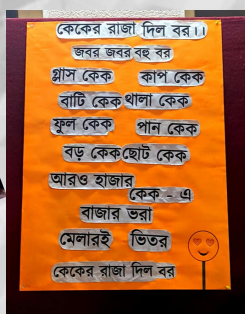 কেকের রাজা দিল বর।।
জবর জবর বহু বর
গ্লাস কেক কাপ কেক
বাটি কেক থালা কেক
ফুল কেক পান কেক
বড় কেক ছোট কেক
আরও হাজার
কেক - এ
বাজার ভরা
মেলারই ভিতর
কেকের রাজা দিল বর